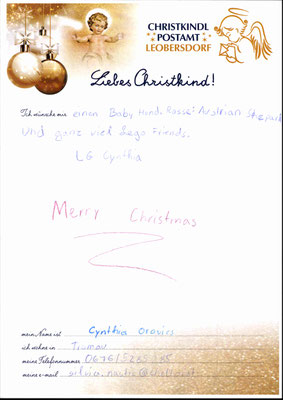 CHRISTKINDL
POSTAMT
LEOBERSDORF
Liebes Christkind!
Ich wünsche mir einen Baby Hund. Rasse:
Und ganz viel Lego Friends.
LG Cynthia
Merry Christmas
mein Name ist Cynthia
ich wohne in
meine Telefonnummer
meine e-mail